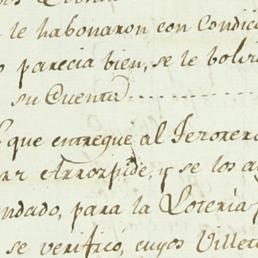 le habonaron con Condic
parecia bien, se le bolv
su Cuenta
que entregué al Tesorero
Arrozpide, y se los a
ndado, para la Loteria
se verificó, cuyos Villet